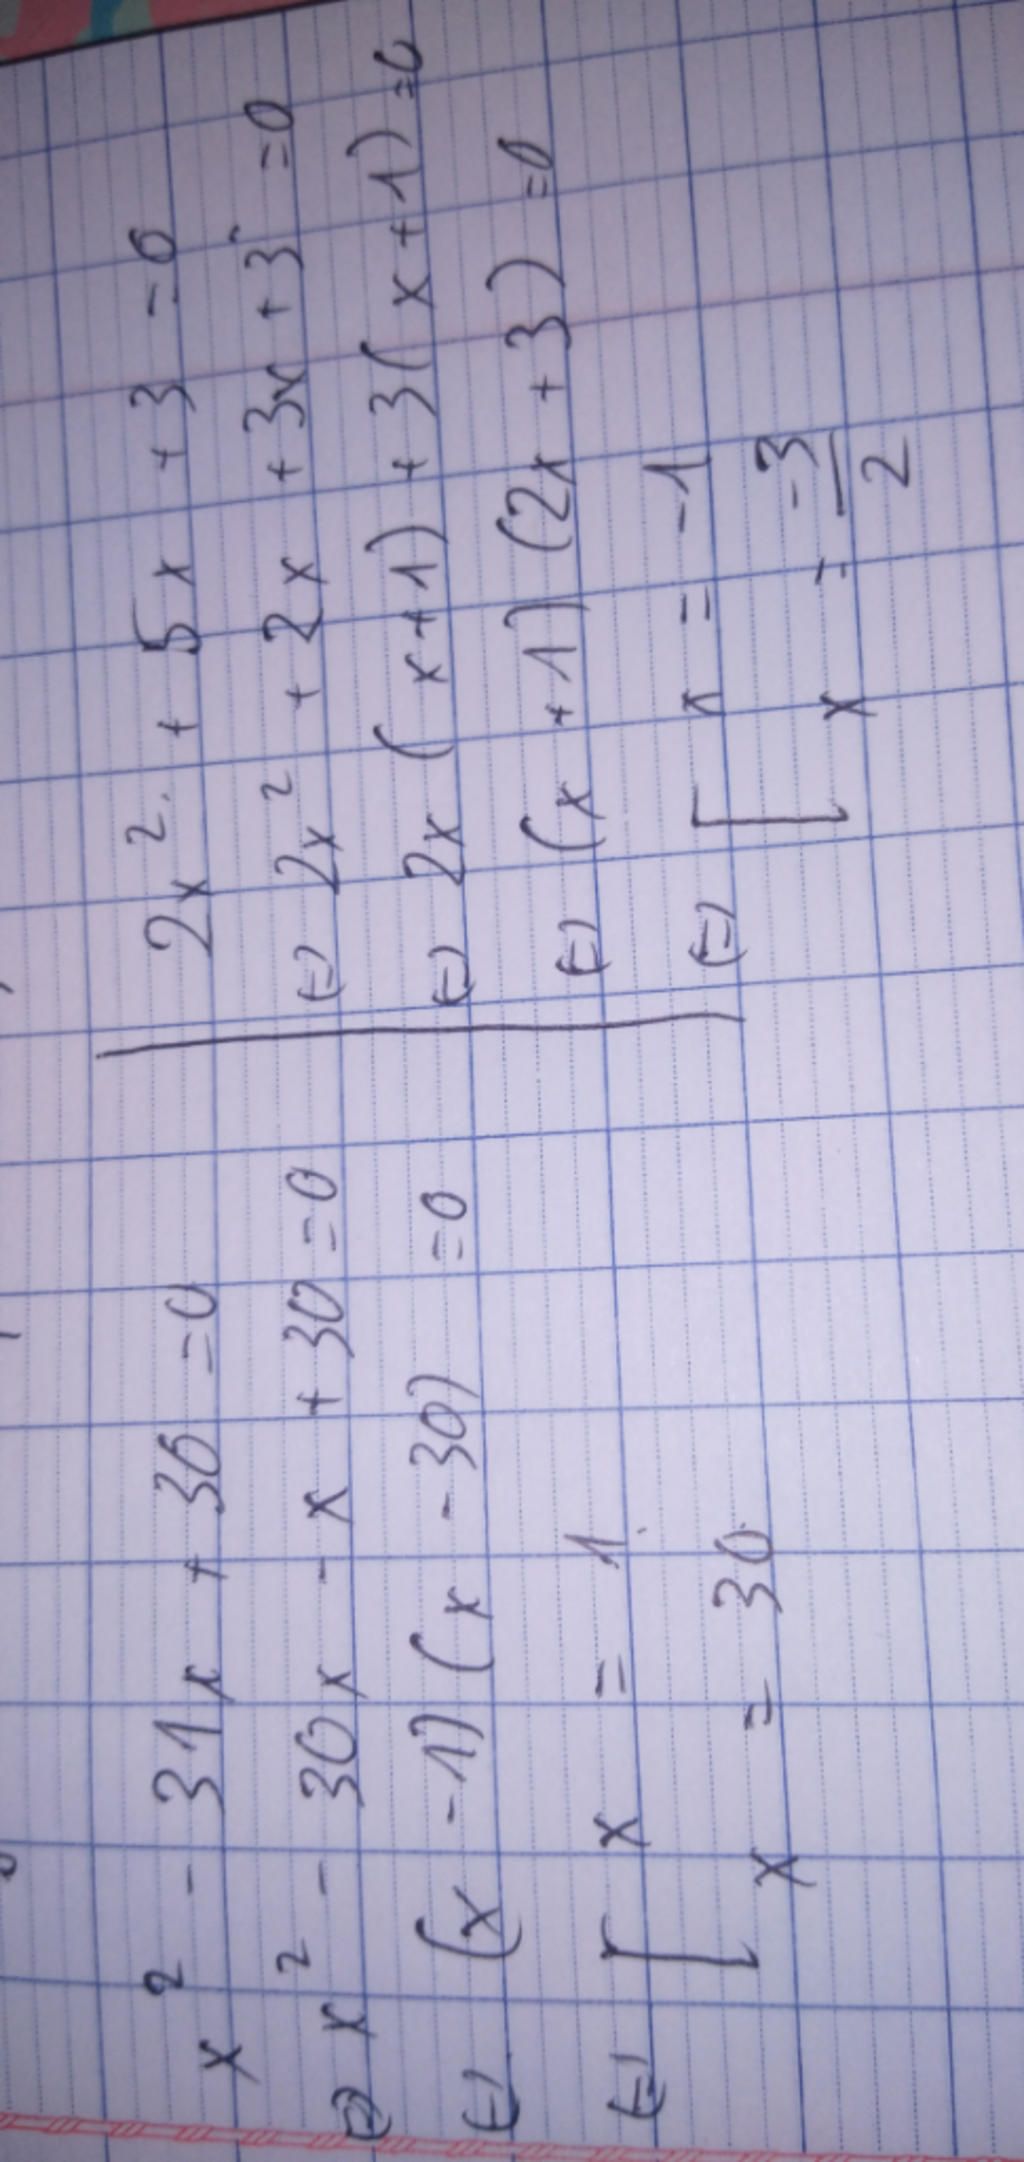 x² - 31x + 30 = 0
⇔ x² - 30x - x + 30 = 0
⇔ (x - 1)(x - 30) = 0
⇔ [ x = 1
x = 30
2x² + 5x + 3 = 0
⇔ 2x² + 2x + 3x + 3 = 0
⇔ 2x(x+1) + 3(x+1) = 0
⇔ (x+1)(2x+3) = 0
⇔ [ x = -1
x = -3/2